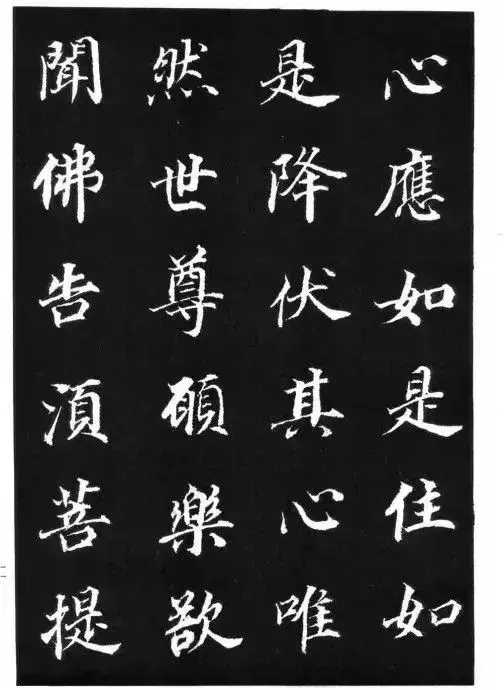 心應如是住如
是降伏其心唯
然世尊願樂欲
聞佛告須菩提